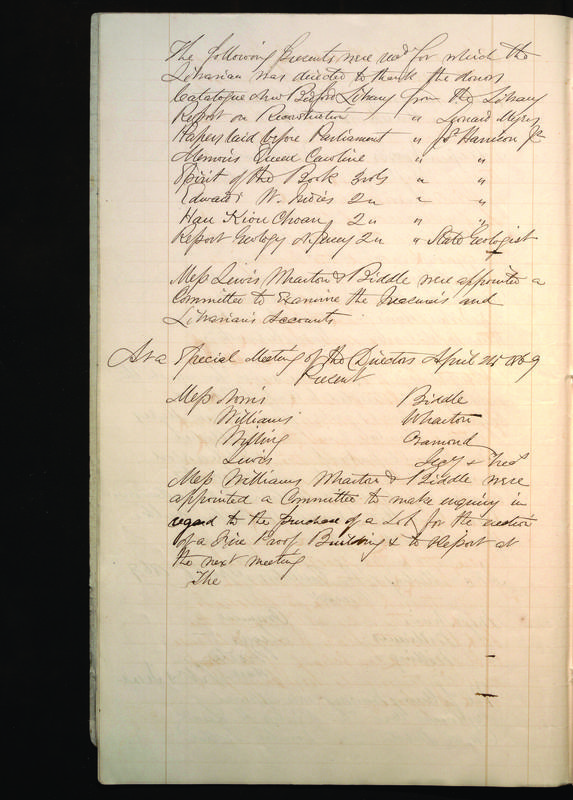 The following Presents were recd for which the
Librarian was directed to thank the donors
Catalogue New Bedford Library from the Library
Report on Reconstruction " Leonard Myers
Papers laid before Parliament " Js. Harrison Jr
Memoirs Queen Caroline " "
Spirit of the Book 3 vols " "
Edward W. 2 " " "
Hau Kiou Choan 2 " " "
Report Geology N Jersey 2 " " State Geologist
Mess Lewis Wharton & Biddle were appointed a
Committee to Examine the Treasurers and
Librarian's Accounts
At a Special Meeting of the Directors April 24 1869
Present
Mess Norris Biddle
Williams Wharton
Willing Ormond
Lewis Secy & Treas
Mess Williams Wharton & Biddle were
appointed a Committee to make enquiry in
regard to the purchase of a Lot for the erection
of a Fire Proof Building & to Report at
the next meeting
The